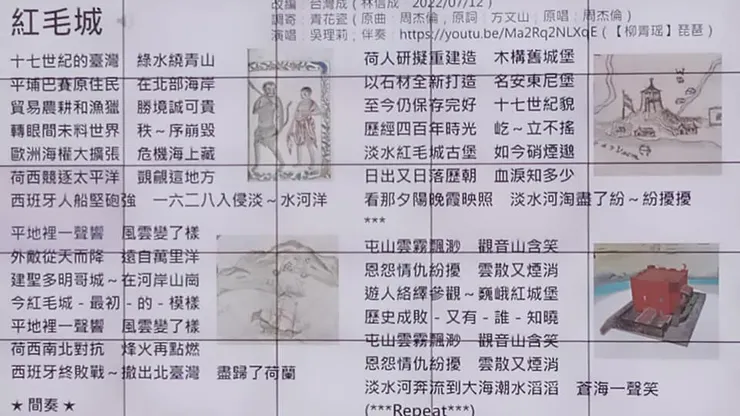 紅毛城
改編：台灣成（林信成 2022/07/12）
調寄：青花瓷（原曲：周杰倫，原詞：方文山；原唱：周杰倫）
演唱：吳理莉；伴奏：https://youtu.be/Ma2Rq2NLXqE（【柳青瑶】琵琶）
十七世紀的臺灣　綠水繞青山
平埔巴賽原住民　在北部海岸
貿易農耕和漁獵　勝境誠可貴
轉眼間未料世界　秩～序崩毀
歐洲海權大擴張　危機海上藏
荷西競逐太平洋　覬覦這地方
西班牙人船堅砲強　一六二八入侵淡～水河洋
平地裡一聲響　風雲變了樣
外敵從天而降　遠自萬里洋
建聖多明哥城～在河岸山崗
今紅毛城-最初-的-模樣
平地裡一聲響　風雲變了樣
荷西南北對抗　烽火再點燃
西班牙終敗戰～撤出北臺灣　盡歸了荷蘭
★間奏★
荷人研擬重建造　木構舊城堡
以石材全新打造　名安東尼堡
至今仍保存完好　十七世紀貌
歷經四百年時光　屹～立不搖
淡水紅毛城古堡　如今硝煙遨
日出又日落歷朝　血淚知多少
看那夕陽晚霞映照　淡水河淘盡了紛～紛擾擾
***
屯山雲霧飄渺　觀音山含笑
恩怨情仇紛擾　雲散又煙消
遊人絡繹參觀～巍峨紅城堡
歷史成敗-又有-誰-知曉
屯山雲霧飄渺　觀音山含笑
恩怨情仇紛擾　雲散又煙消
淡水河奔流到大海潮水滔滔　蒼海一聲笑
(***Repeat***)